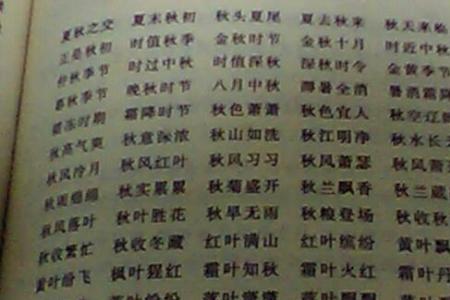 夏秋之交 夏末秋初 秋头夏尾 夏去秋来 秋天来临
正是秋初 时值秋季 金秋时节 金秋十月 时近中秋
仲秋季节 时过中秋 时值深秋 深秋时令 金黄季节
暮秋季节 晚秋时节 八月中秋 溽暑全消 暑消霜降
霜冻时期 霜降时节 秋色萧萧 秋色宜人 秋空辽
秋高气爽 秋意深浓 秋山如洗 秋江明净 秋水长天
秋风冷月 秋风红叶 秋风习习 秋风萧瑟 秋风萧
秋雨绵绵 秋实累累 秋菊盛开 秋兰飘香 秋兰葳
秋风落叶 秋叶胜花 秋旱无雨 秋粮登场 秋收秋
秋收繁忙 秋收冬藏 红叶满山 红叶缤纷 黄叶飘
黄叶纷飞 枫叶猩红 霜叶知秋 霜叶火红 霜叶丹
落叶纷纷 落叶萧萧 落叶飘飘